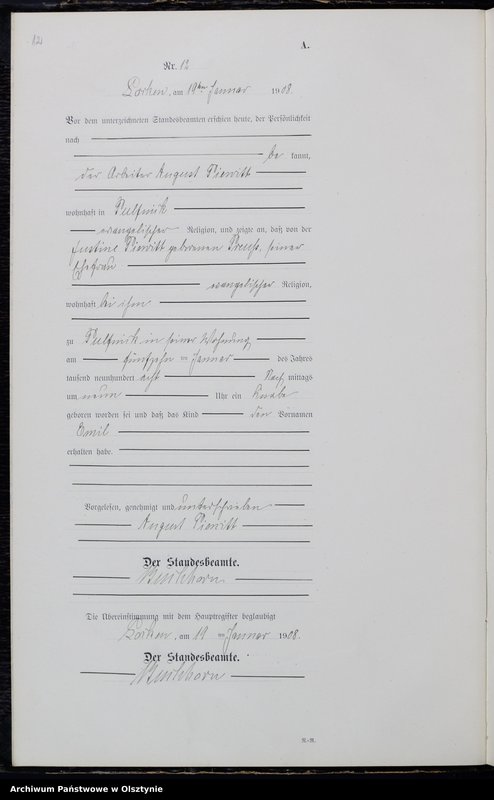 12
A.
Nr. 12
am 19ten Januar 1908.
Vor dem unterzeichneten Standesbeamten erschien heute, der Persönlichkeit
nach
be kannt,
der Arbeiter August Piewitt
wohnhaft in
evangelischer Religion, und zeigte an, daß von der
Justine Piewitt geborenen Preuß, seiner
Ehefrau
evangelischer Religion,
wohnhaft bei ihm
zu in seiner Wohnung
am fünfzehn ten Januar des Jahres
tausend neunhundert acht Nach mittags
um neun Uhr ein Knabe
geboren worden sei und daß das Kind den Vornamen
Emil
erhalten habe.
Vorgelesen, genehmigt und unterschrieben
August Piewitt
Der Standesbeamte.
Die Übereinstimmung mit dem Hauptregister beglaubigt
am 19 ten Januar 1908.
Der Standesbeamte.
Archiwum Państwowe w Olsztynie